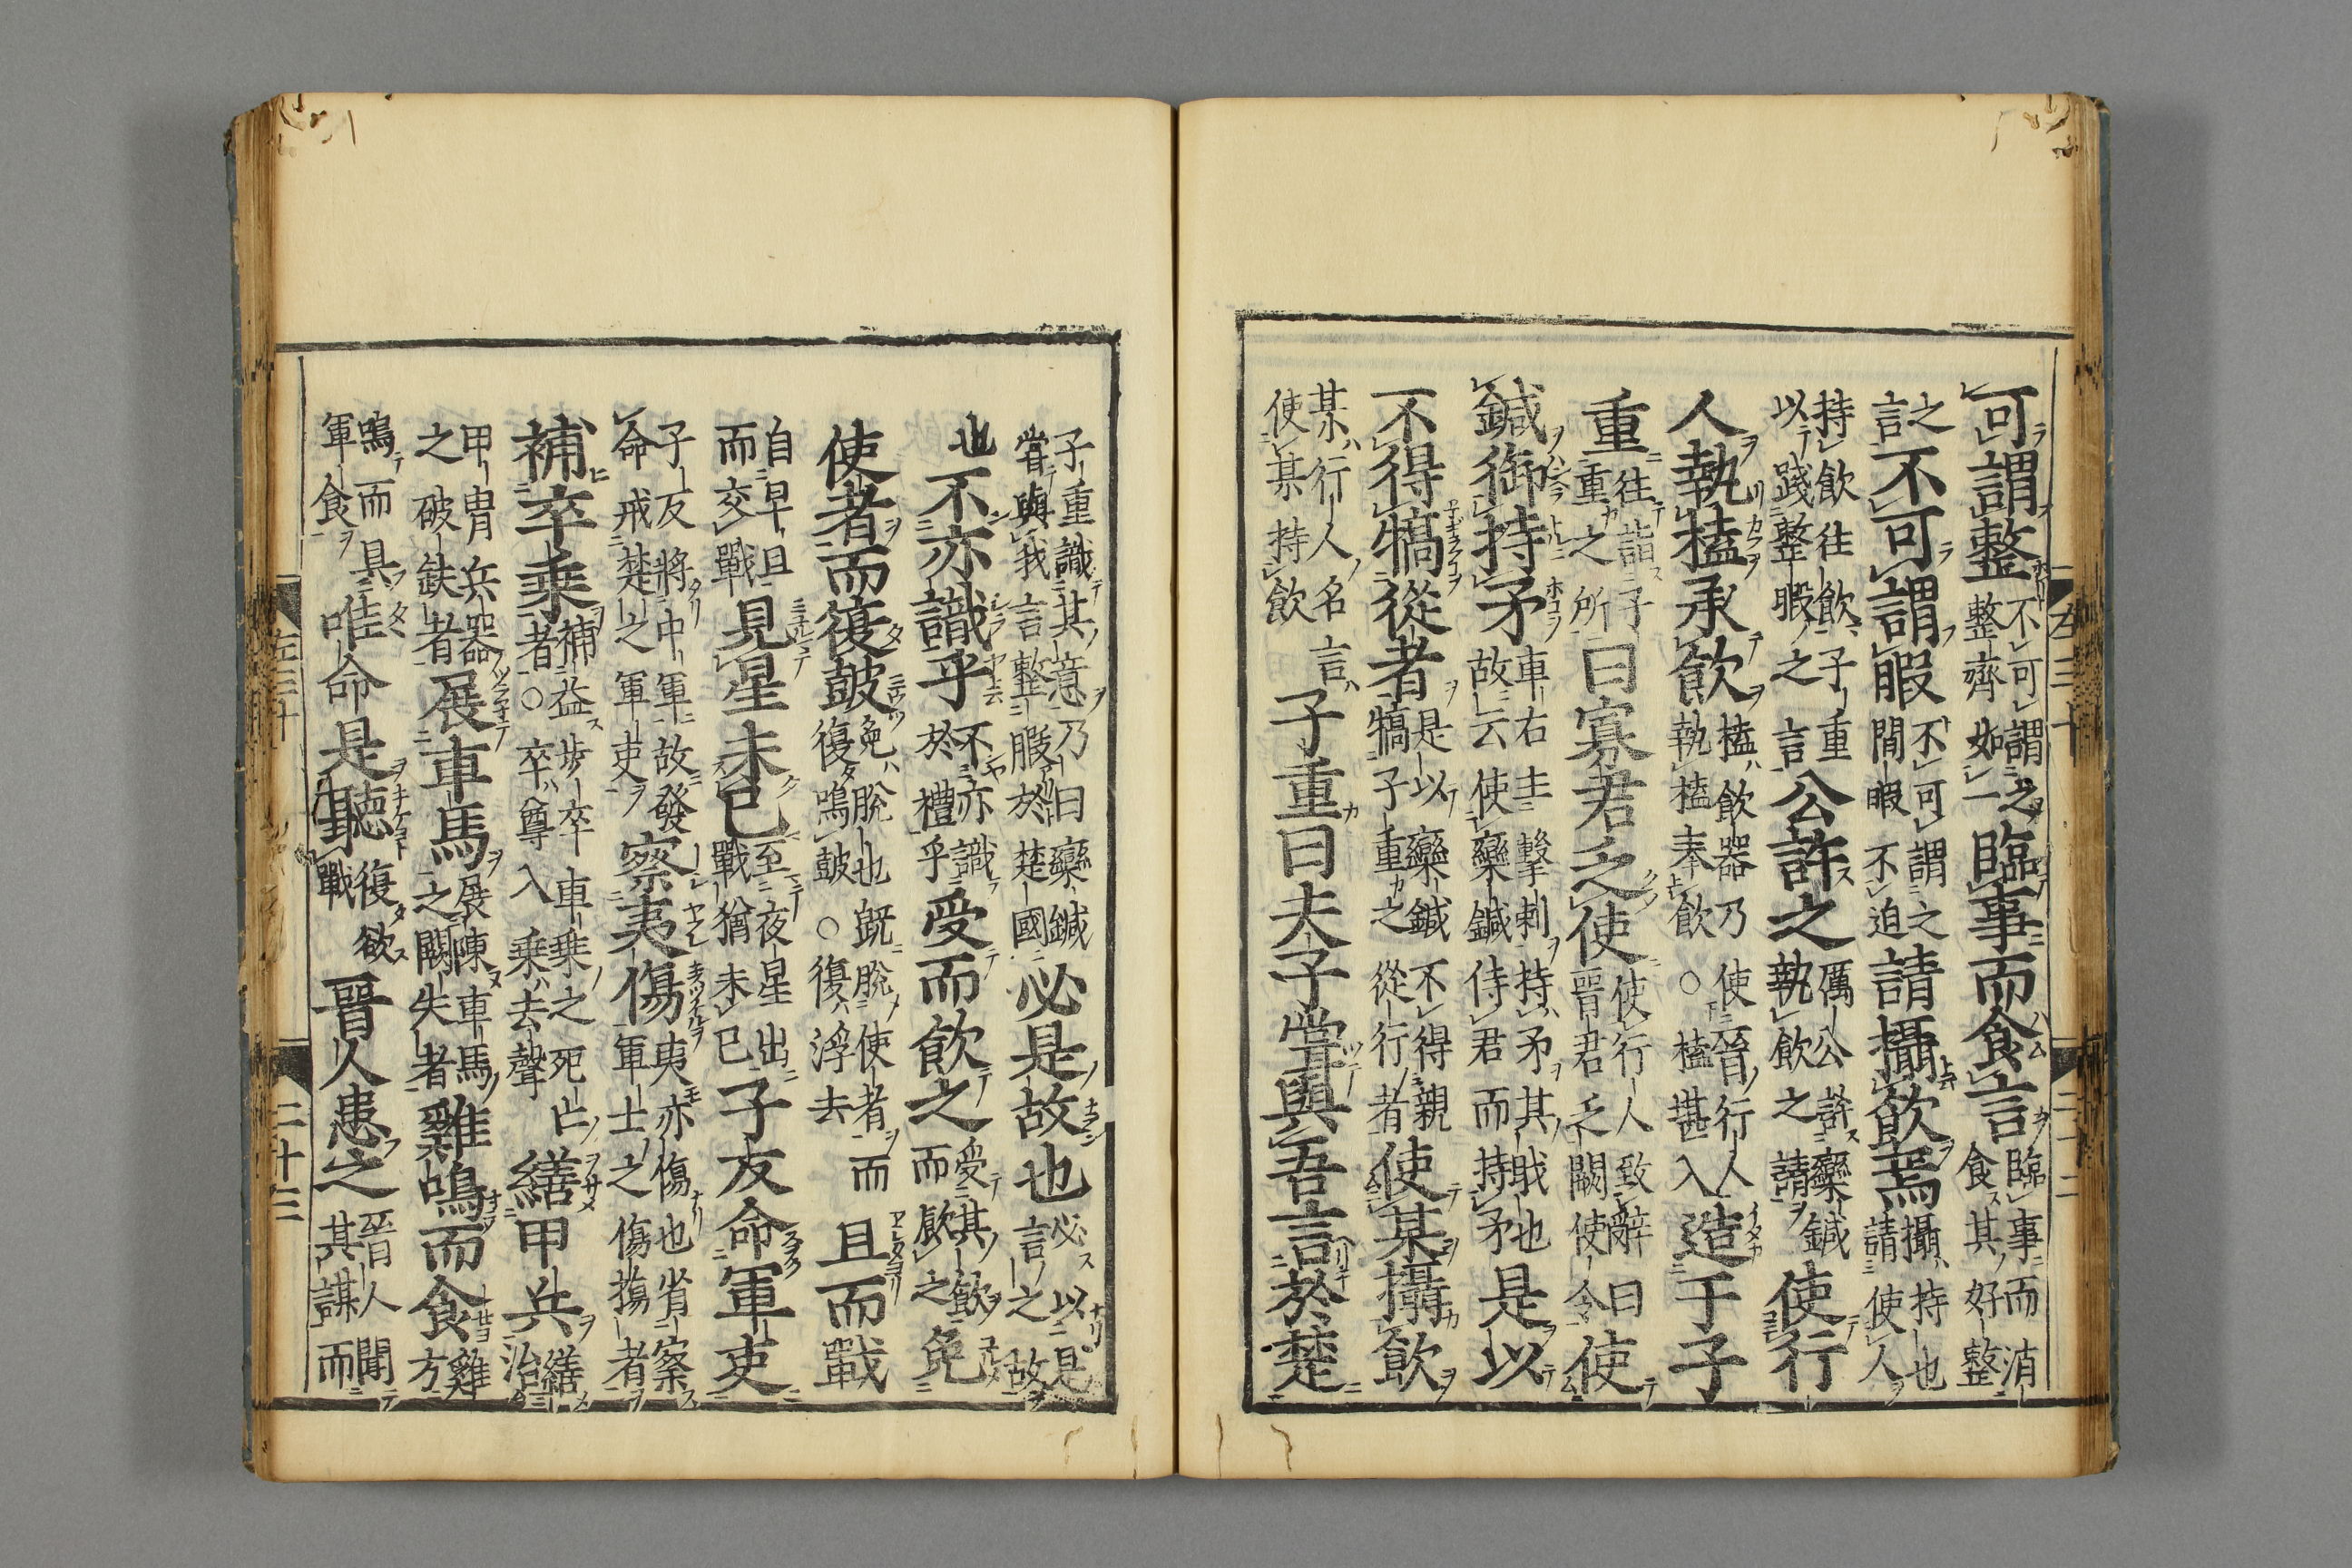 可謂整不可謂之整齊如一臨事而食言臨事而消食其好整
之言不可謂暇不可謂之閒暇不迫請攝飲焉攝持也請使人
持飲往飲子重以踐整暇之言公許之厲公許欒鍼執飲之請使行
人執榼承飲榼飲器乃使晉行人執榼奉飲○榼堪入造于子
重往詣子重之所曰寡君乏使使行人致辭曰晉君乏闕使令使
鍼御持矛車右主擊刺持矛其戠也故云使欒鍼侍君而持矛是以
不得犒從者是以欒鍼不得親犒子重之從行者使某攝飲
某行人名言使某持飲子重曰夫子嘗與吾言於楚
左三十 二十二
子重識其意乃曰欒鍼嘗與我言整暇於楚國必是故也必以是言之故
也不亦識乎不亦識於禮乎受而飲之受其飲而飲之免
使者而復鼓免脫也既脫使者而復鳴鼓○復浮去旦而戰
自早旦而交戰見星未已至夜星出戰猶未已子反命軍吏
子反將中軍故發命戒楚之軍吏察夷傷夷亦傷也省察軍士之傷者
補卒乘補益步卒車乘之死亡者○卒尊入乘去聲繕甲兵繕治
甲冑兵器之破缺者展車馬展陳車馬之闕失者雞鳴而食雞方
鳴而具軍食唯命是聽復欲戰晉人患之晉人聞其謀而
左三十 二十三